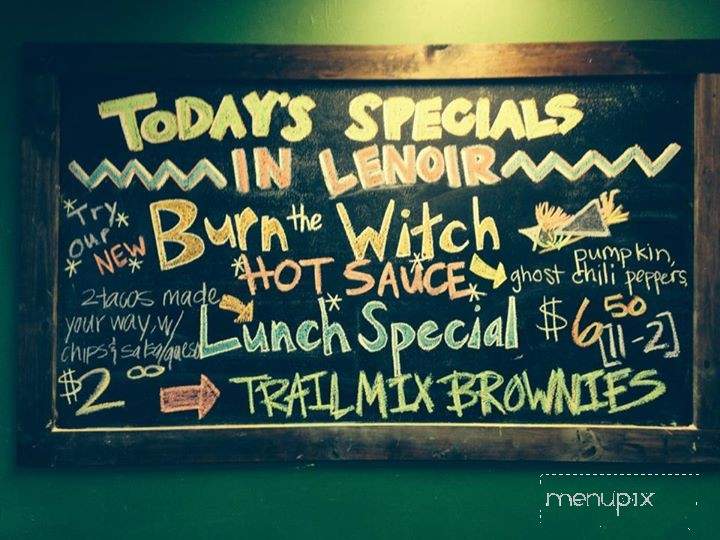 TODAY'S SPECIALS
IN LENOIR
*Try*
our
* NEW*
Burn the Witch
*HOT SAUCE*
pumpkin,
ghost chili peppers
2 tacos made
your way, w/
chips & salsa/queso
Lunch Special
$6.50
[11-2]
$2.00
TRAIL MIX BROWNIES
menupix